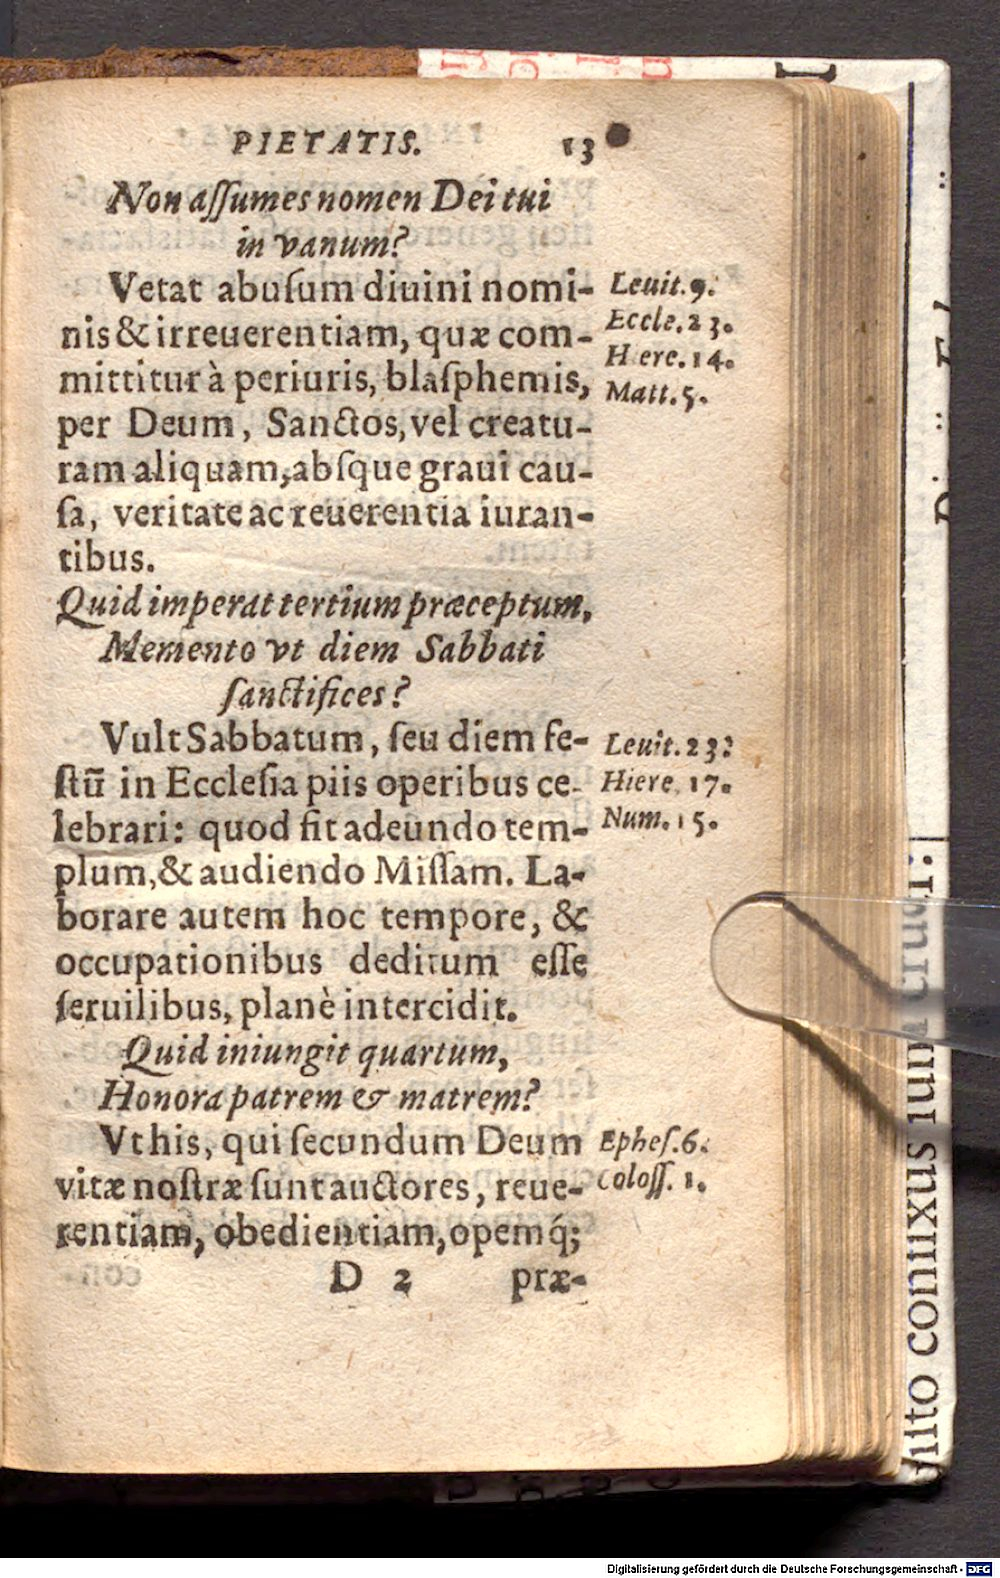 PIETATIS. 13
Non assumes nomen Dei tui
in vanum?
Vetat abusum diuini nomi-
nis & irreuerentiam, quæ com-
mittitur à periuris, blasphemis,
per Deum, Sanctos, vel creatu-
ram aliquam, absque graui cau-
sa, veritate ac reuerentia iuran-
tibus.
Leuit. 9.
Eccle. 23.
Hiere. 14.
Matt. 5.
Quid imperat tertium præceptum,
Memento vt diem Sabbati
sanctifices?
Vult Sabbatum, seu diem fe-
stū in Ecclesia piis operibus ce-
lebrari: quod fit adeundo tem-
plum, & audiendo Missam. La-
borare autem hoc tempore, &
occupationibus deditum esse
seruilibus, planè intercidit.
Leuit. 23.
Hiere. 17.
Num. 15.
Quid iniungit quartum,
Honora patrem & matrem?
Vt his, qui secundum Deum
vitæ nostræ sunt auctores, reue-
rentiam, obedientiam, opemq́;
Ephes. 6.
Coloss. 1.
D 2 præ-
Digitalisierung gefördert durch die Deutsche Forschungsgemeinschaft - DFG